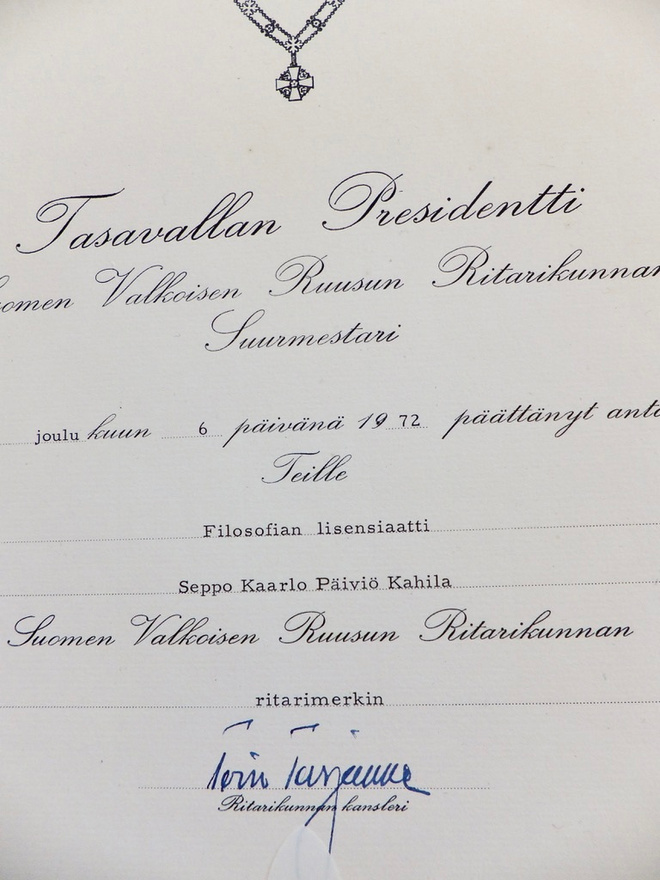 Tasavallan Presidentti
Suomen Valkoisen Ruusun Ritarikunnan
Suurmestari
joulu kuun 6 päivänä 19 72 päättänyt anta
Teille
Filosofian lisensiaatti
Seppo Kaarlo Päiviö Kahila
Suomen Valkoisen Ruusun Ritarikunnan
ritarimerkin
Toivo Tarjanne
Ritarikunnan kansleri